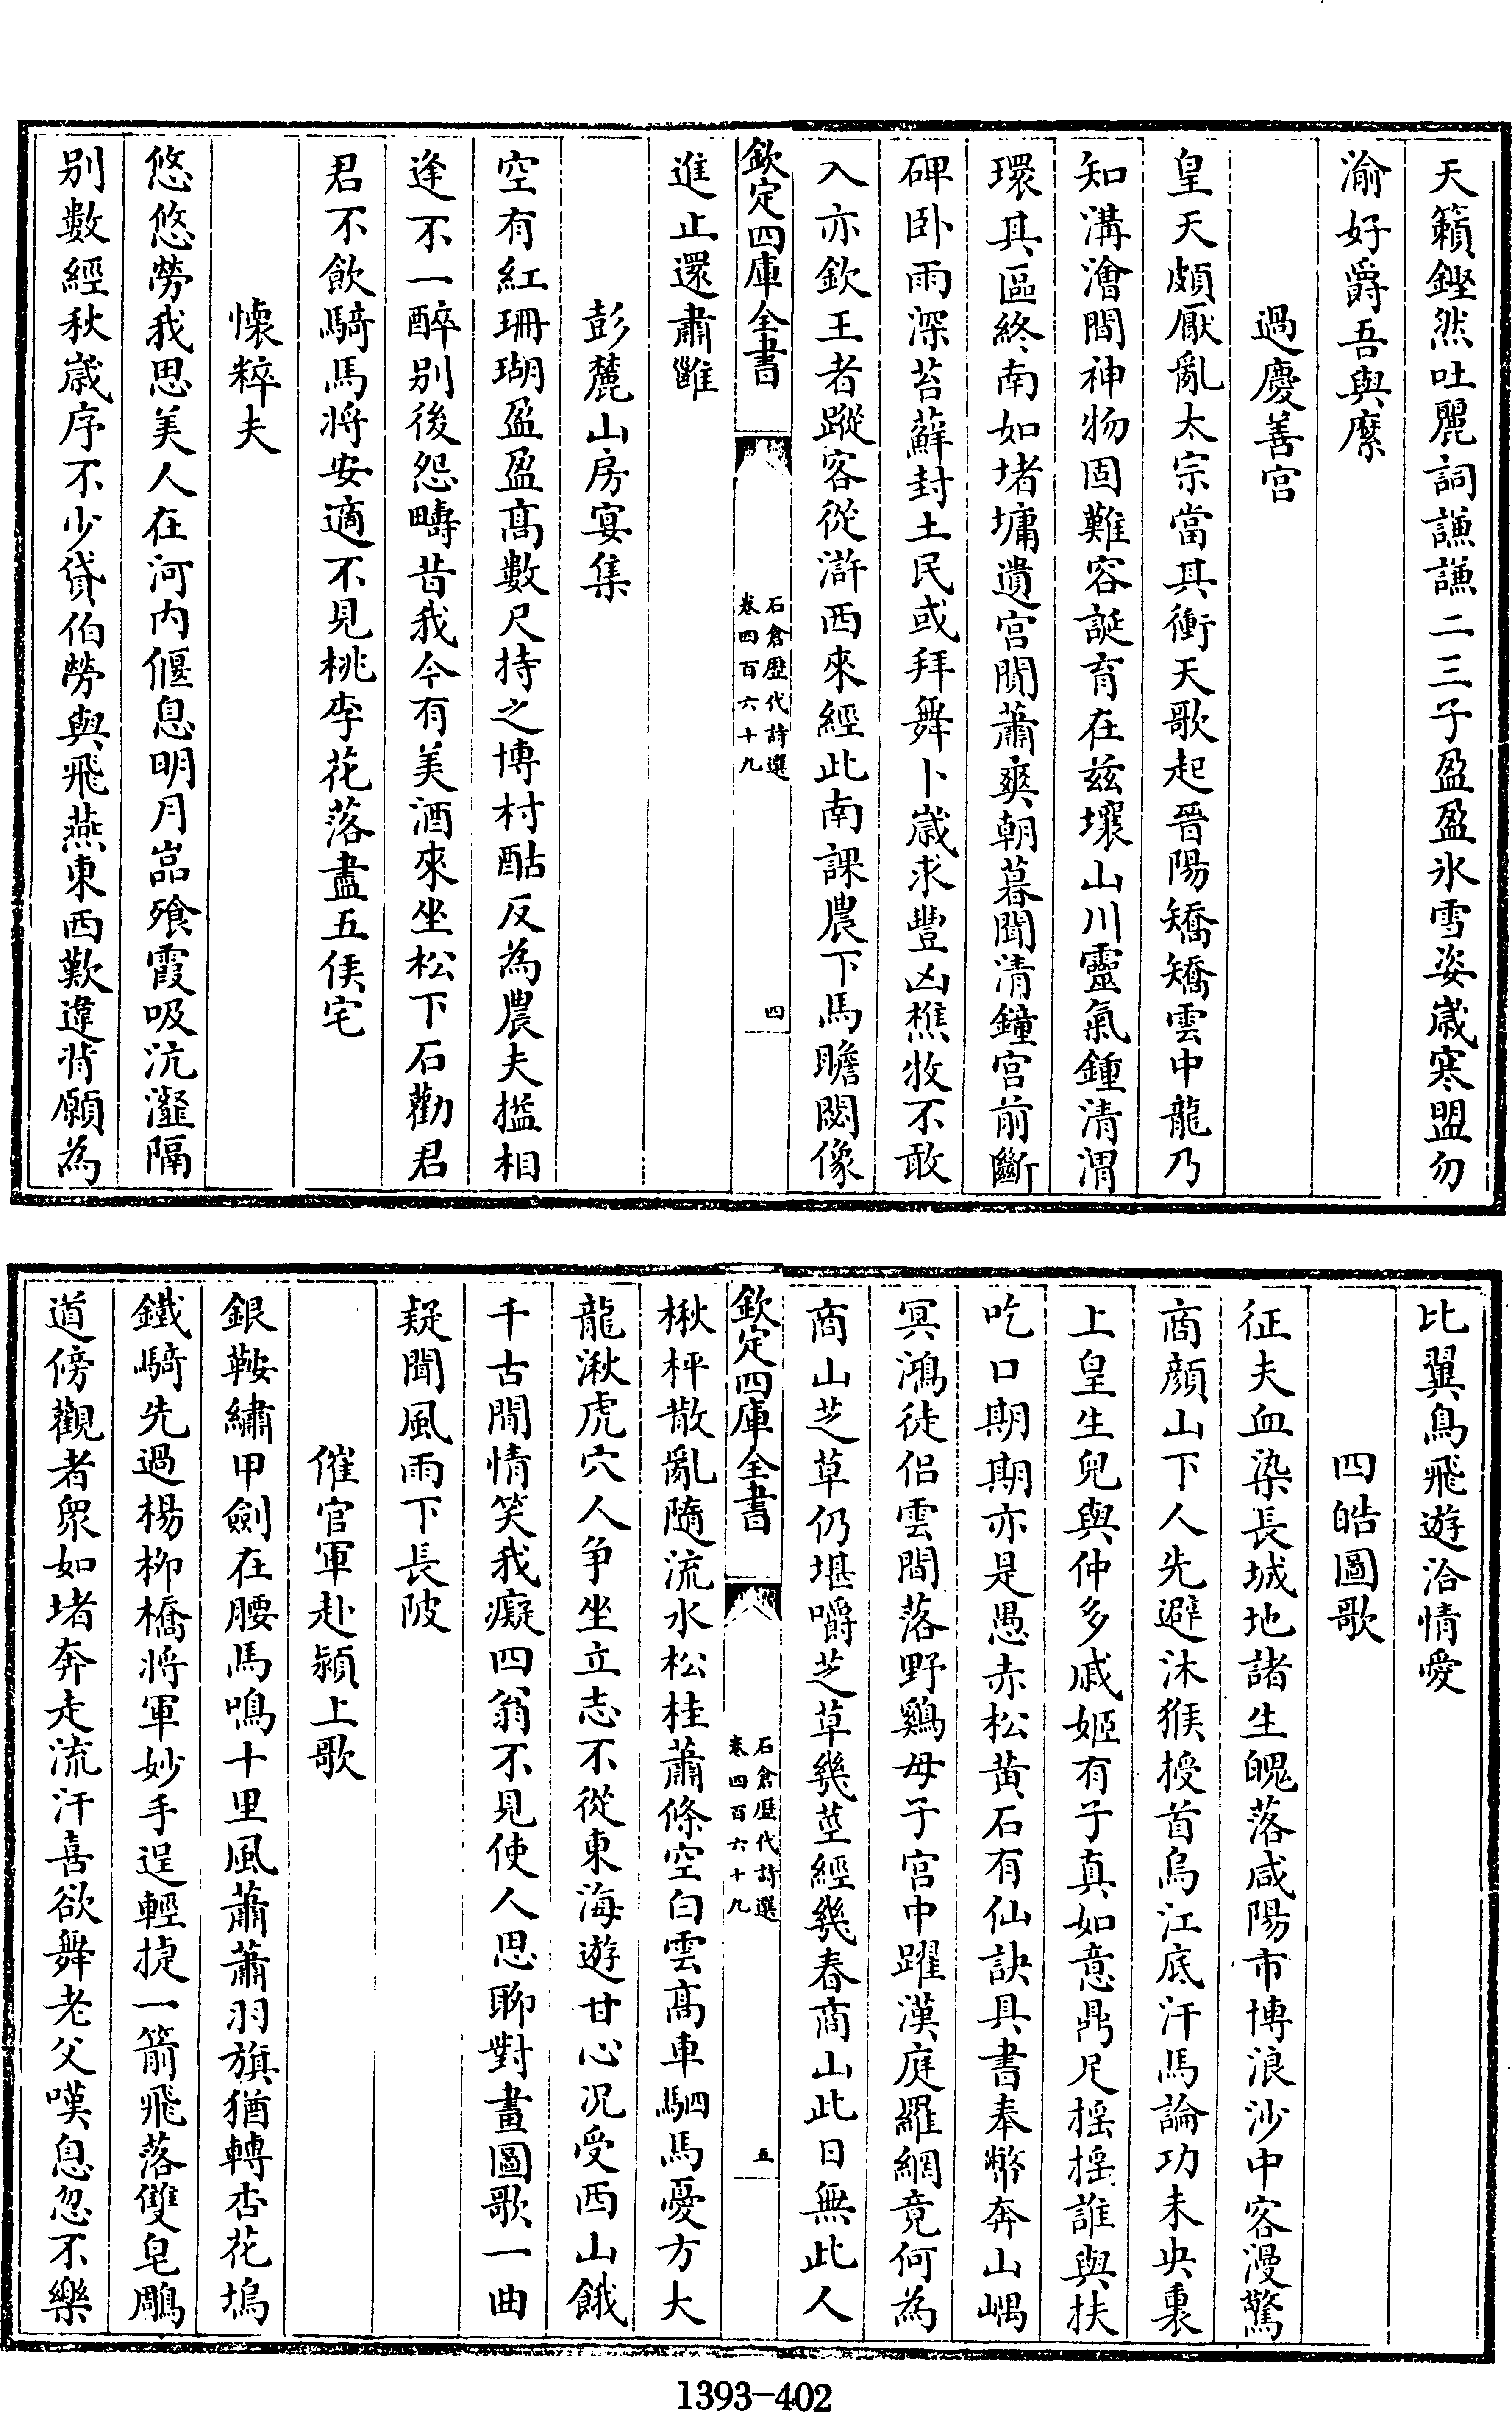 天籟鏗然吐麗詞謙謙二三子盈盈氷雪姿嵗寒盟勿
渝好爵吾與縻
過慶善宫
皇天頗厭亂太宗當其衝天歌起晉陽矯矯雲中龍乃
知溝澮間神物固難容誕育在兹壤山川靈氣鍾清渭
環具區終南如堵墉遺宫閴蕭爽朝暮聞清鐘宫前斷
碑卧雨深苔蘚封土民或拜舞卜嵗求豐凶樵牧不敢
入亦欽王者蹤客從滸西來經此南課農下馬瞻閟像
進止還肅雝
欽定四庫全書
石倉歴代詩選
卷四百六十九
四
彭麓山房宴集
空有紅珊瑚盈盈髙數尺持之博村酤反為農夫搤相
逢不一醉别後怨疇昔我今有美酒來坐松下石勸君
君不飲騎馬将安適不見桃李花落盡五侯宅
懷粹夫
悠悠勞我思美人在河内偃息明月嵓飱霞吸沆瀣隔
别數經秋嵗序不少貸伯勞與飛燕東西歎違背願為
比翼鳥飛遊洽情愛
四皓圖歌
征夫血染長城地諸生魄落咸陽市博浪沙中客漫驚
商顔山下人先避沐猴授首烏江底汗馬論功未央裏
上皇生兒與仲多戚姬有子真如意鼎足揺揺誰與扶
吃口期期亦是愚赤松黄石有仙訣具書奉幣奔山嵎
冥鴻徒侣雲間落野鷄母子宫中躍漢庭羅網竟何為
商山芝草仍堪嚼芝草幾莖經幾春商山此日無此人
欽定四庫全書
石倉歴代詩選
卷四百六十九
五
楸枰散亂隨流水松桂蕭條空白雲髙車駟馬憂方大
龍湫虎穴人争坐立志不從東海遊甘心况受西山餓
千古閒情笑我癡四翁不見使人思聊對畫圖歌一曲
疑聞風雨下長陂
催官軍赴潁上歌
銀鞍繡甲劍在腰馬鳴十里風蕭蕭羽旗猶轉杏花塢
鐵騎先過楊栁橋將軍妙手逞輕捷一箭飛落雙皂鵰
道傍觀者衆如堵奔走流汗喜欲舞老父嘆息忽不樂
1393-402